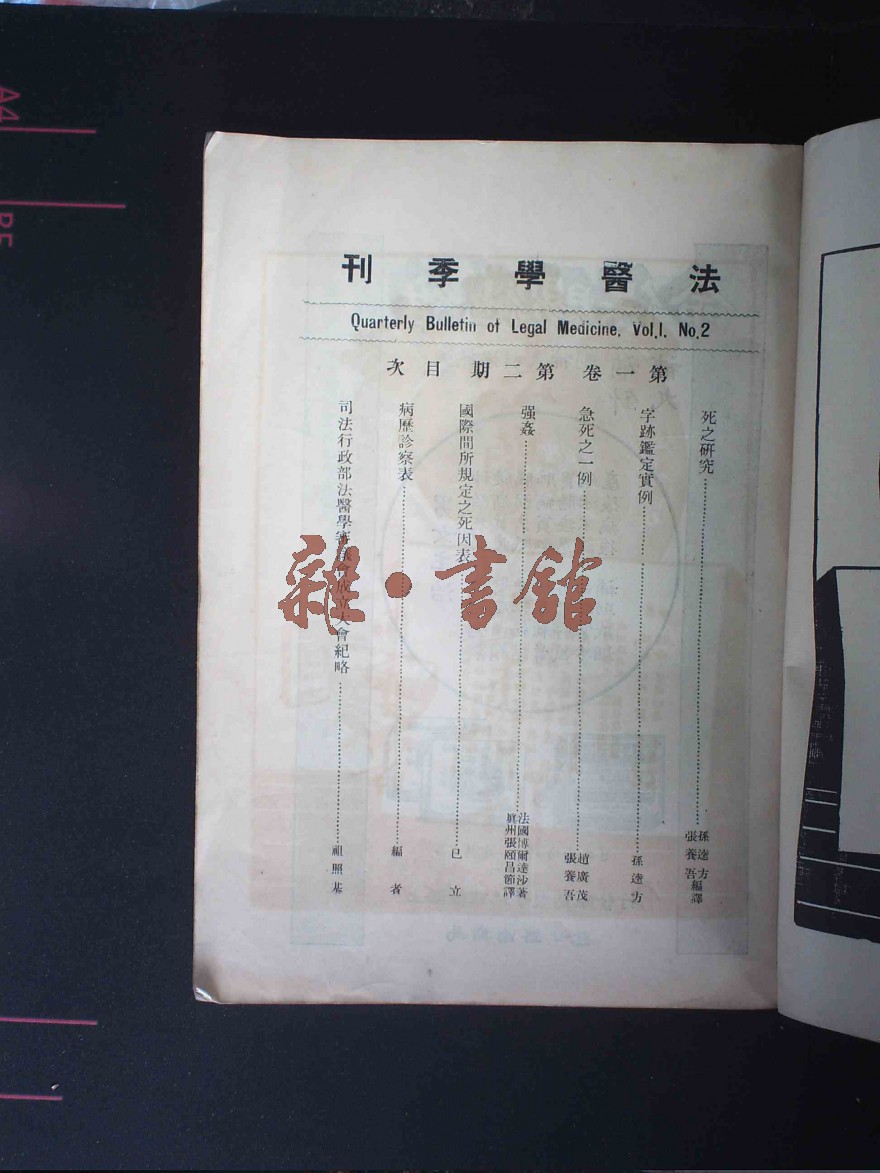 法醫學季刊
Quarterly Bulletin of Legal Medicine, Vol.1. No.2
第一卷 第二期 目次
死之研究
孫逵方
張養吾編譯
字跡鑑定實例
孫逵方
急死之一例
趙廣茂
張養吾
强姦
法國博爾達沙著
張頤昌節譯
國際間所規定之死因表
已立
病歷診察表
編者
司法行政部法醫學審議會成立大會紀略
祖照基
雜·書館
A4